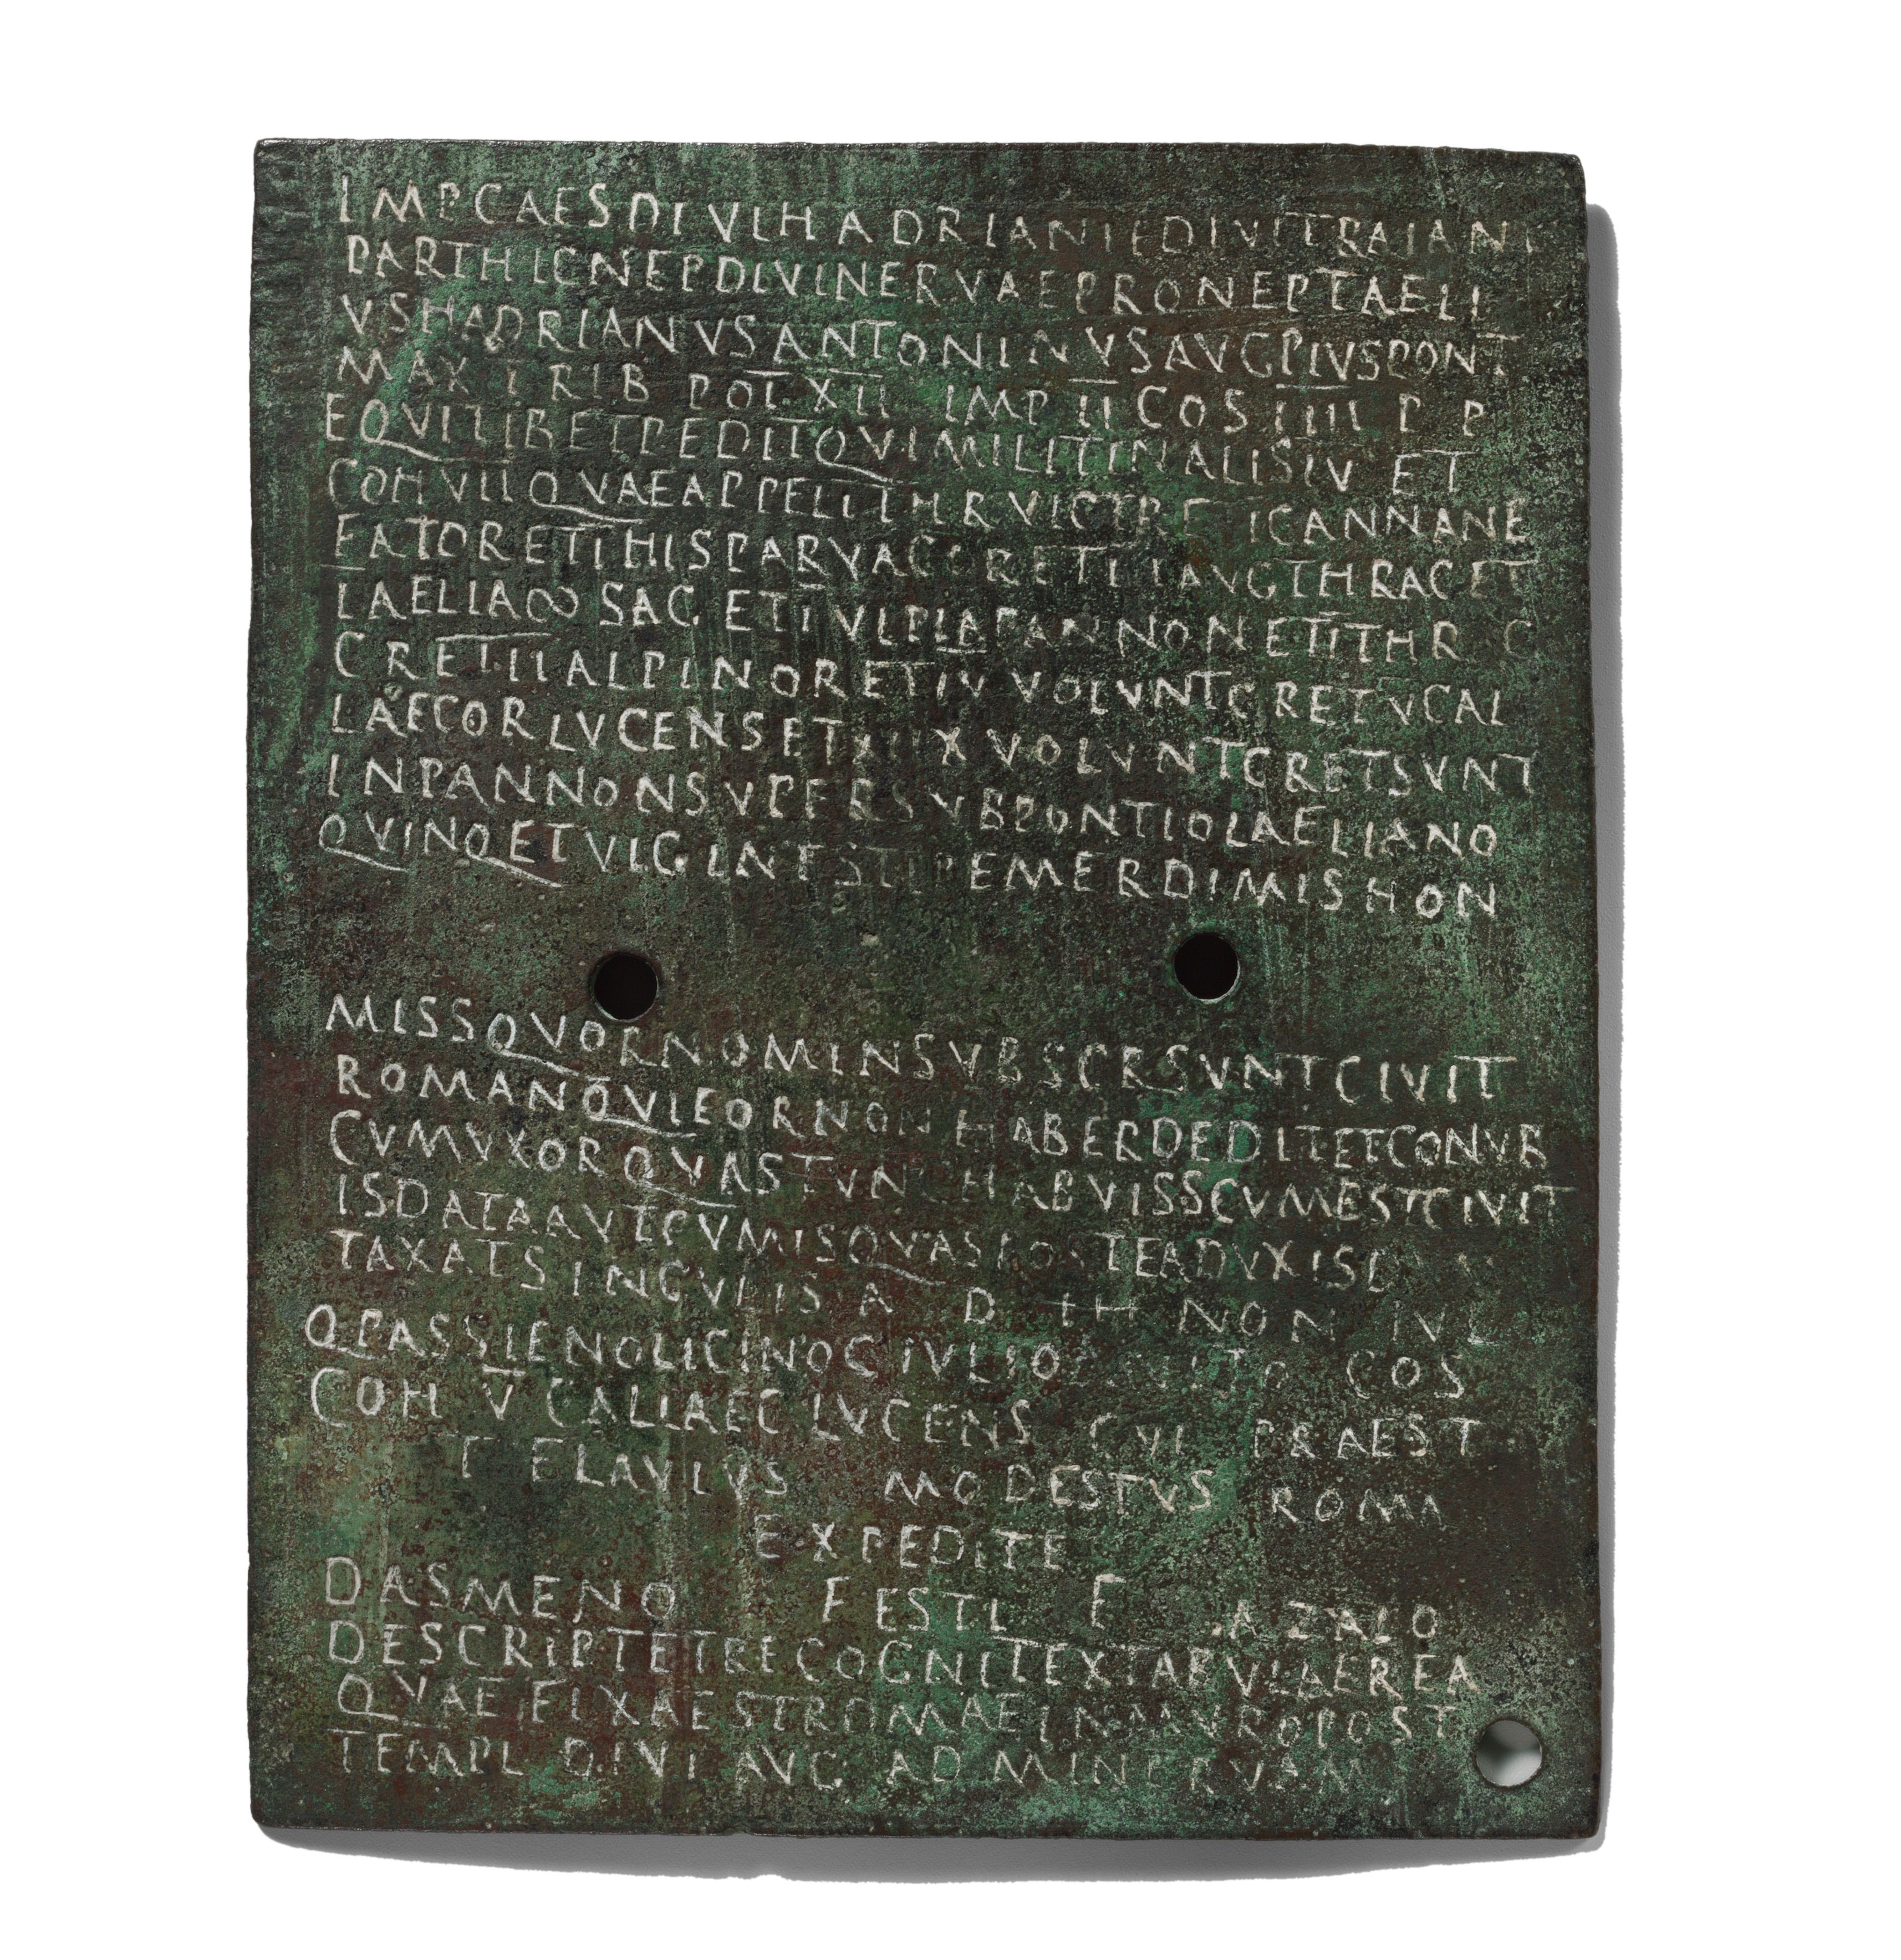 IMP CAES DIVI HADRIANI F DIVI TRAIANI
PARTHIC NEP DIVI NERVAE PRONEP T AELI
VS HADRIANVS ANTONINVS AVG PIVS PONT
MAX TRIB POT XII IMP II COS IIII P P
EQVITIB ET PEDIT QVI MILIT IN ALIS IV ET
COH VII QVAE APPELL I THR VICTR ET I CANNANE
FATOR ET I HISP ARVACOR ET III AVG THRAC ET
I AELIA ∞ SAG ET I VLPIA PANNON ET I THR C
C R ET II ALPINOR ET IV VOLVNT C R ET V CAL
LAECOR LVCENS ET XIIX VOLVNT C R ET SVNT
IN PANNON SVPER SVB PONTIO LAELIANO
QVINQ ET VIGINT STIP EMER DIMIS HON
MISS QVOR NOMIN SVBSCR SVNT CIVIT
ROMAN QVI EOR NON HABER DEDIT ET CONVB
CVM VXOR QVAS TVNC HABVISS CVM EST CIVIT
IS DATA AVT CVM IS QVAS POSTEA DVXIS
TAXAT SINGVLIS A D III NON IVL
Q PASSIENO LICINO C IVLIO COS
COH V CALLAEC LVCENS CVI PRAEST
T FLAVIVS MODESTVS ROMA
EXPEDITE
DASMENO FESTI F AZALO
DESCRIPT ET RECOGNIT EX TABVLA EREA
QVAE FIXA EST ROMAE IN MVRO POST
TEMPL DIVI AVG AD MINERVAM